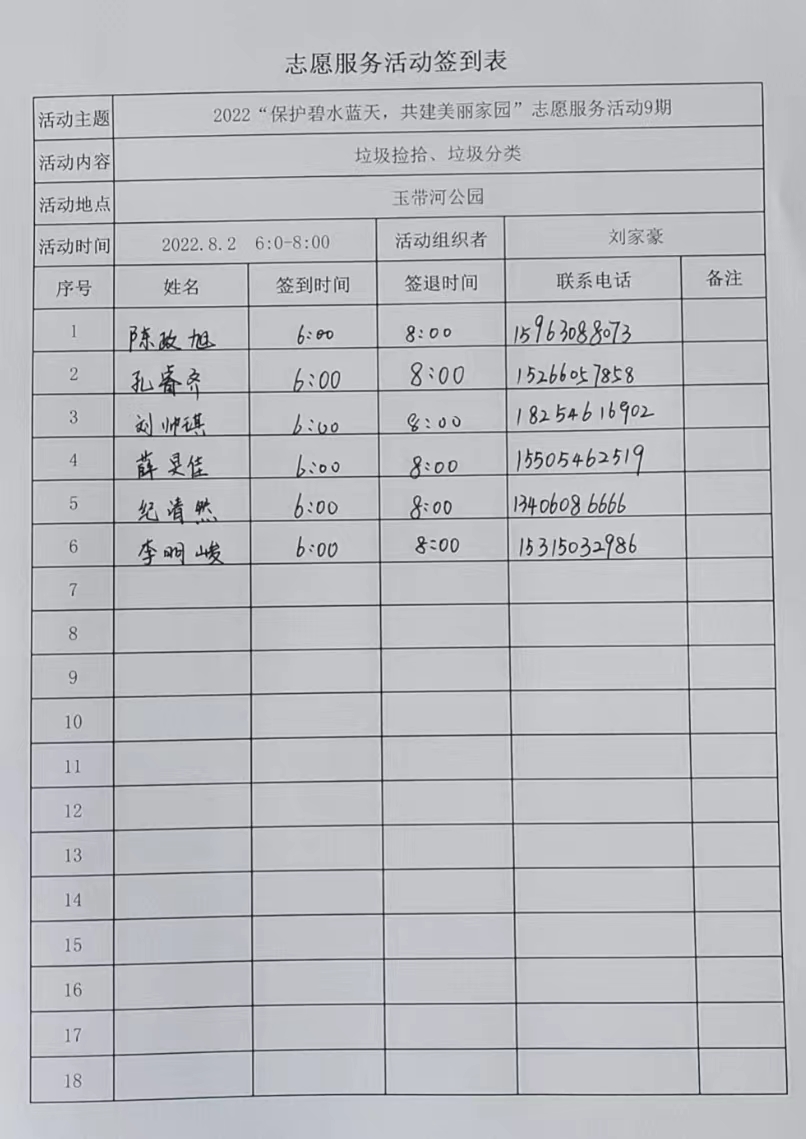 志愿服务活动签到表
活动主题 2022“保护碧水蓝天，共建美丽家园”志愿服务活动9期
活动内容 垃圾捡拾、垃圾分类
活动地点 玉带河公园
活动时间 2022.8.2 6:0-8:00 活动组织者 刘家豪
序号 姓名 签到时间 签退时间 联系电话 备注
1 陈政旭 6:00 8:00 15963088073
2 孔睿齐 6:00 8:00 15266057858
3 刘帅琪 6:00 8:00 18254616902
4 薛昊佳 6:00 8:00 15505462519
5 纪清然 6:00 8:00 13406086666
6 李明峻 6:00 8:00 15315032986
7
8
9
10
11
12
13
14
15
16
17
18